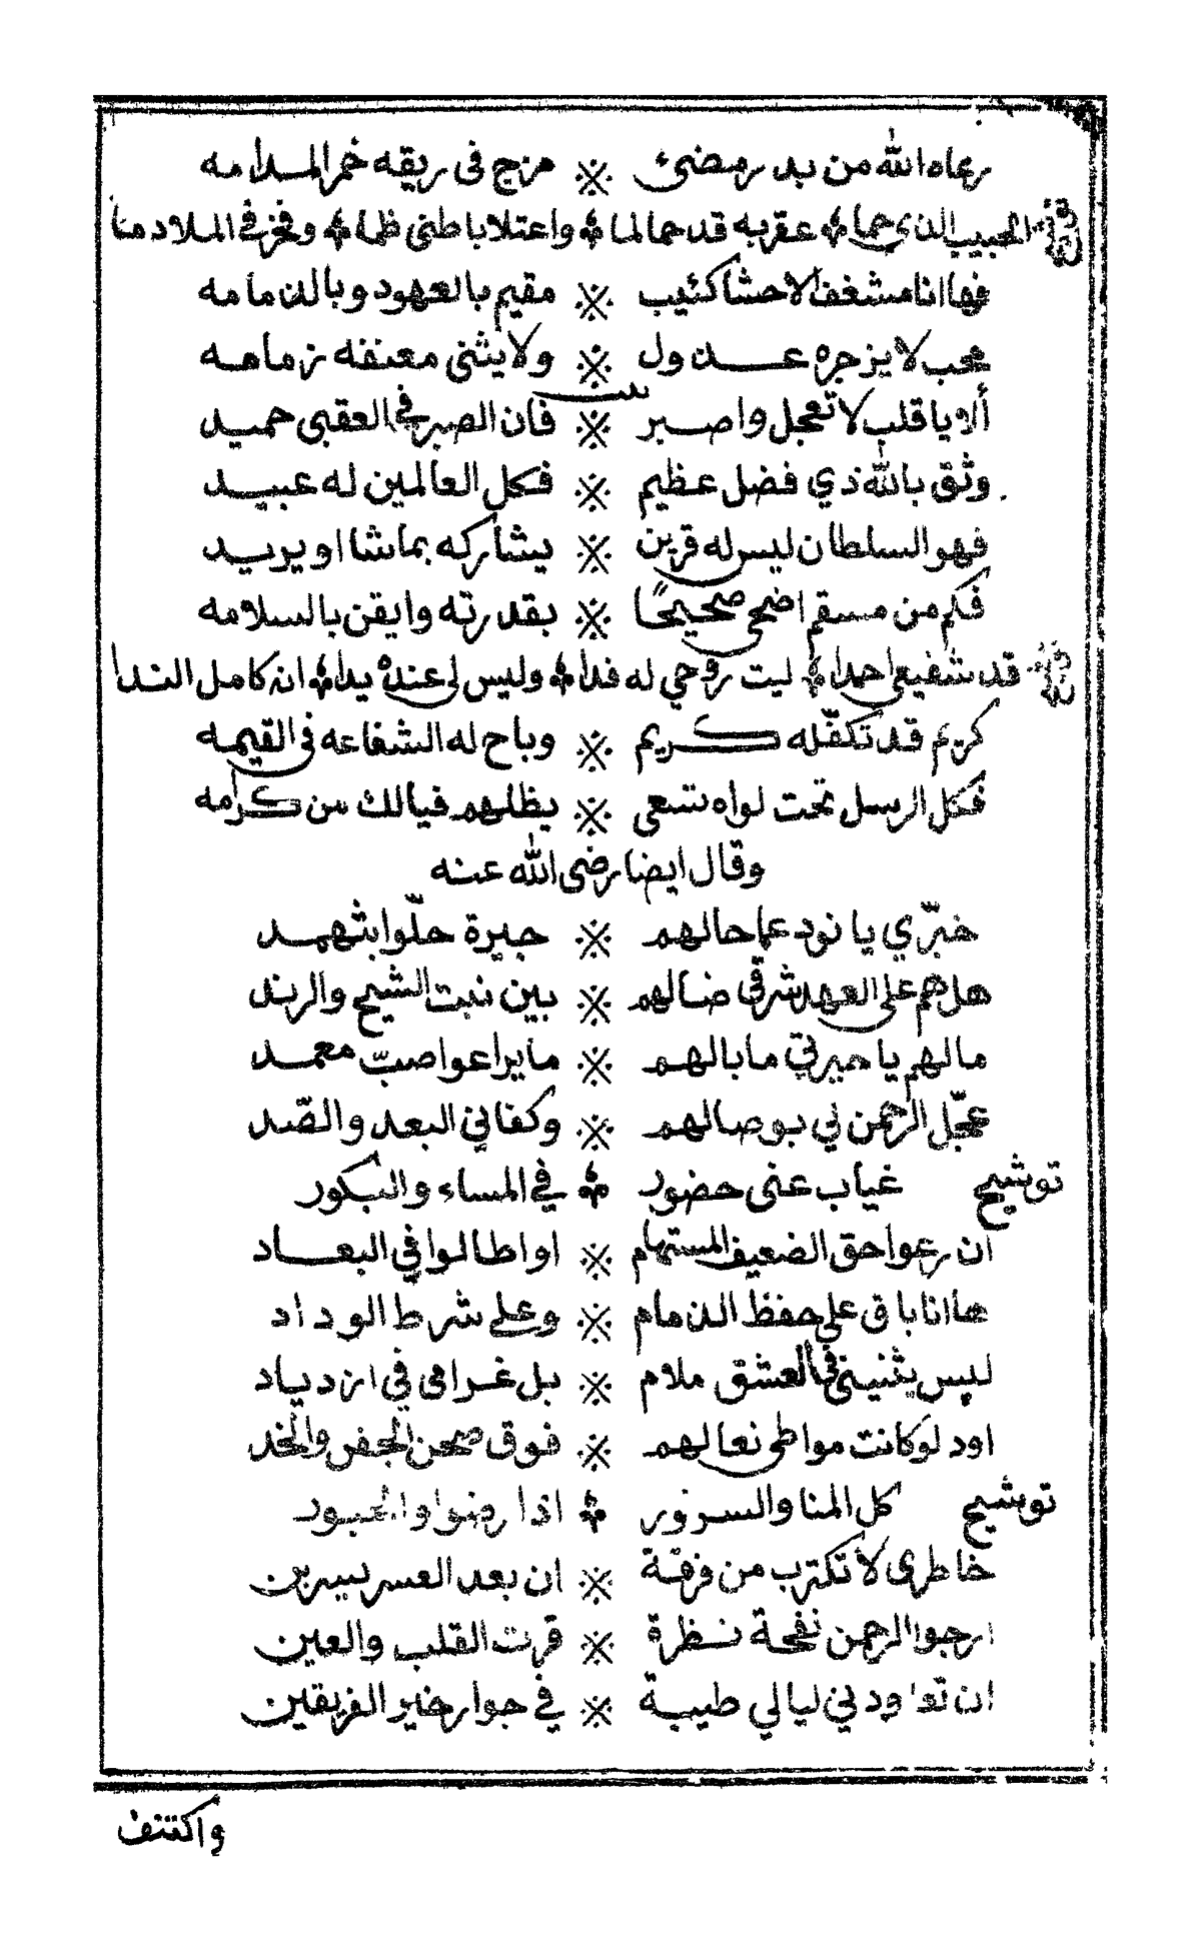 رعاه الله من بدر مضئ ※ مزج فى ريقه خمر المدامه
الحبيب الذي حما عقربه قد حما لما واعتلا باطنى ظما وفخر في الملاد منا
فها انا مشغف الاحشا كئيب ※ مقيم بالعهود وبالذمامه
محب لا يزجره عذول ※ ولا يثنى معنفه زمامه
ألا يا قلب لا تعجل واصبر ※ فان الصبر في العقبى حميد
وثق بالله ذي فضل عظيم ※ فكل العالمين له عبيد
فهو السلطان ليس له قرين ※ يشاركه بما شا او يريد
فكم من مسقم اضحى صحيحًا ※ بقدرته وايقن بالسلامه
قد شفيعى احمدا ليت روحي له فدا وليس لى عنده يدا انه كامل الندا
كريم قد تكفّله كريم ※ وباح له الشفاعه فى القيمه
فكل الرسل تحت لواه تسعى ※ يظلهم فيالك من كرامه
وقال ايضا رضى الله عنه
خبّري يا نود عما حالهم ※ جيرة حلّوا بثهمد
هل هم على العهد شرقى ضالهم ※ بين نبت الشيح والرند
ما لهم يا جيرتي ما بالهم ※ ما يراعوا صبّ معمد
عجّل الرحمن لي بوصالهم ※ وكفاني البعد والصّد
توشيح غياب عنى حضور في المساء والبكور
ان رعوا حق الضعيف المستهام ※ او اطالوا في البعاد
ها انا باق على حفظ الذمام ※ وعلى شرط الوداد
ليس يثنينى في العشق ملام ※ بل غرامى في ازدياد
اود لو كانت مواطى نعالهم ※ فوق صحن الجفن والخد
توشيح كل المنا والسرور اذا رضوا والحبور
خاطرى لا تكترب من فرقة ※ ان بعد العسر يسرين
ارجوا الرحمن نفحة نظرة ※ قرت القلب والعين
ان تعاودني ليالي طيبة ※ في جوار خير الفريقين
واكتنف